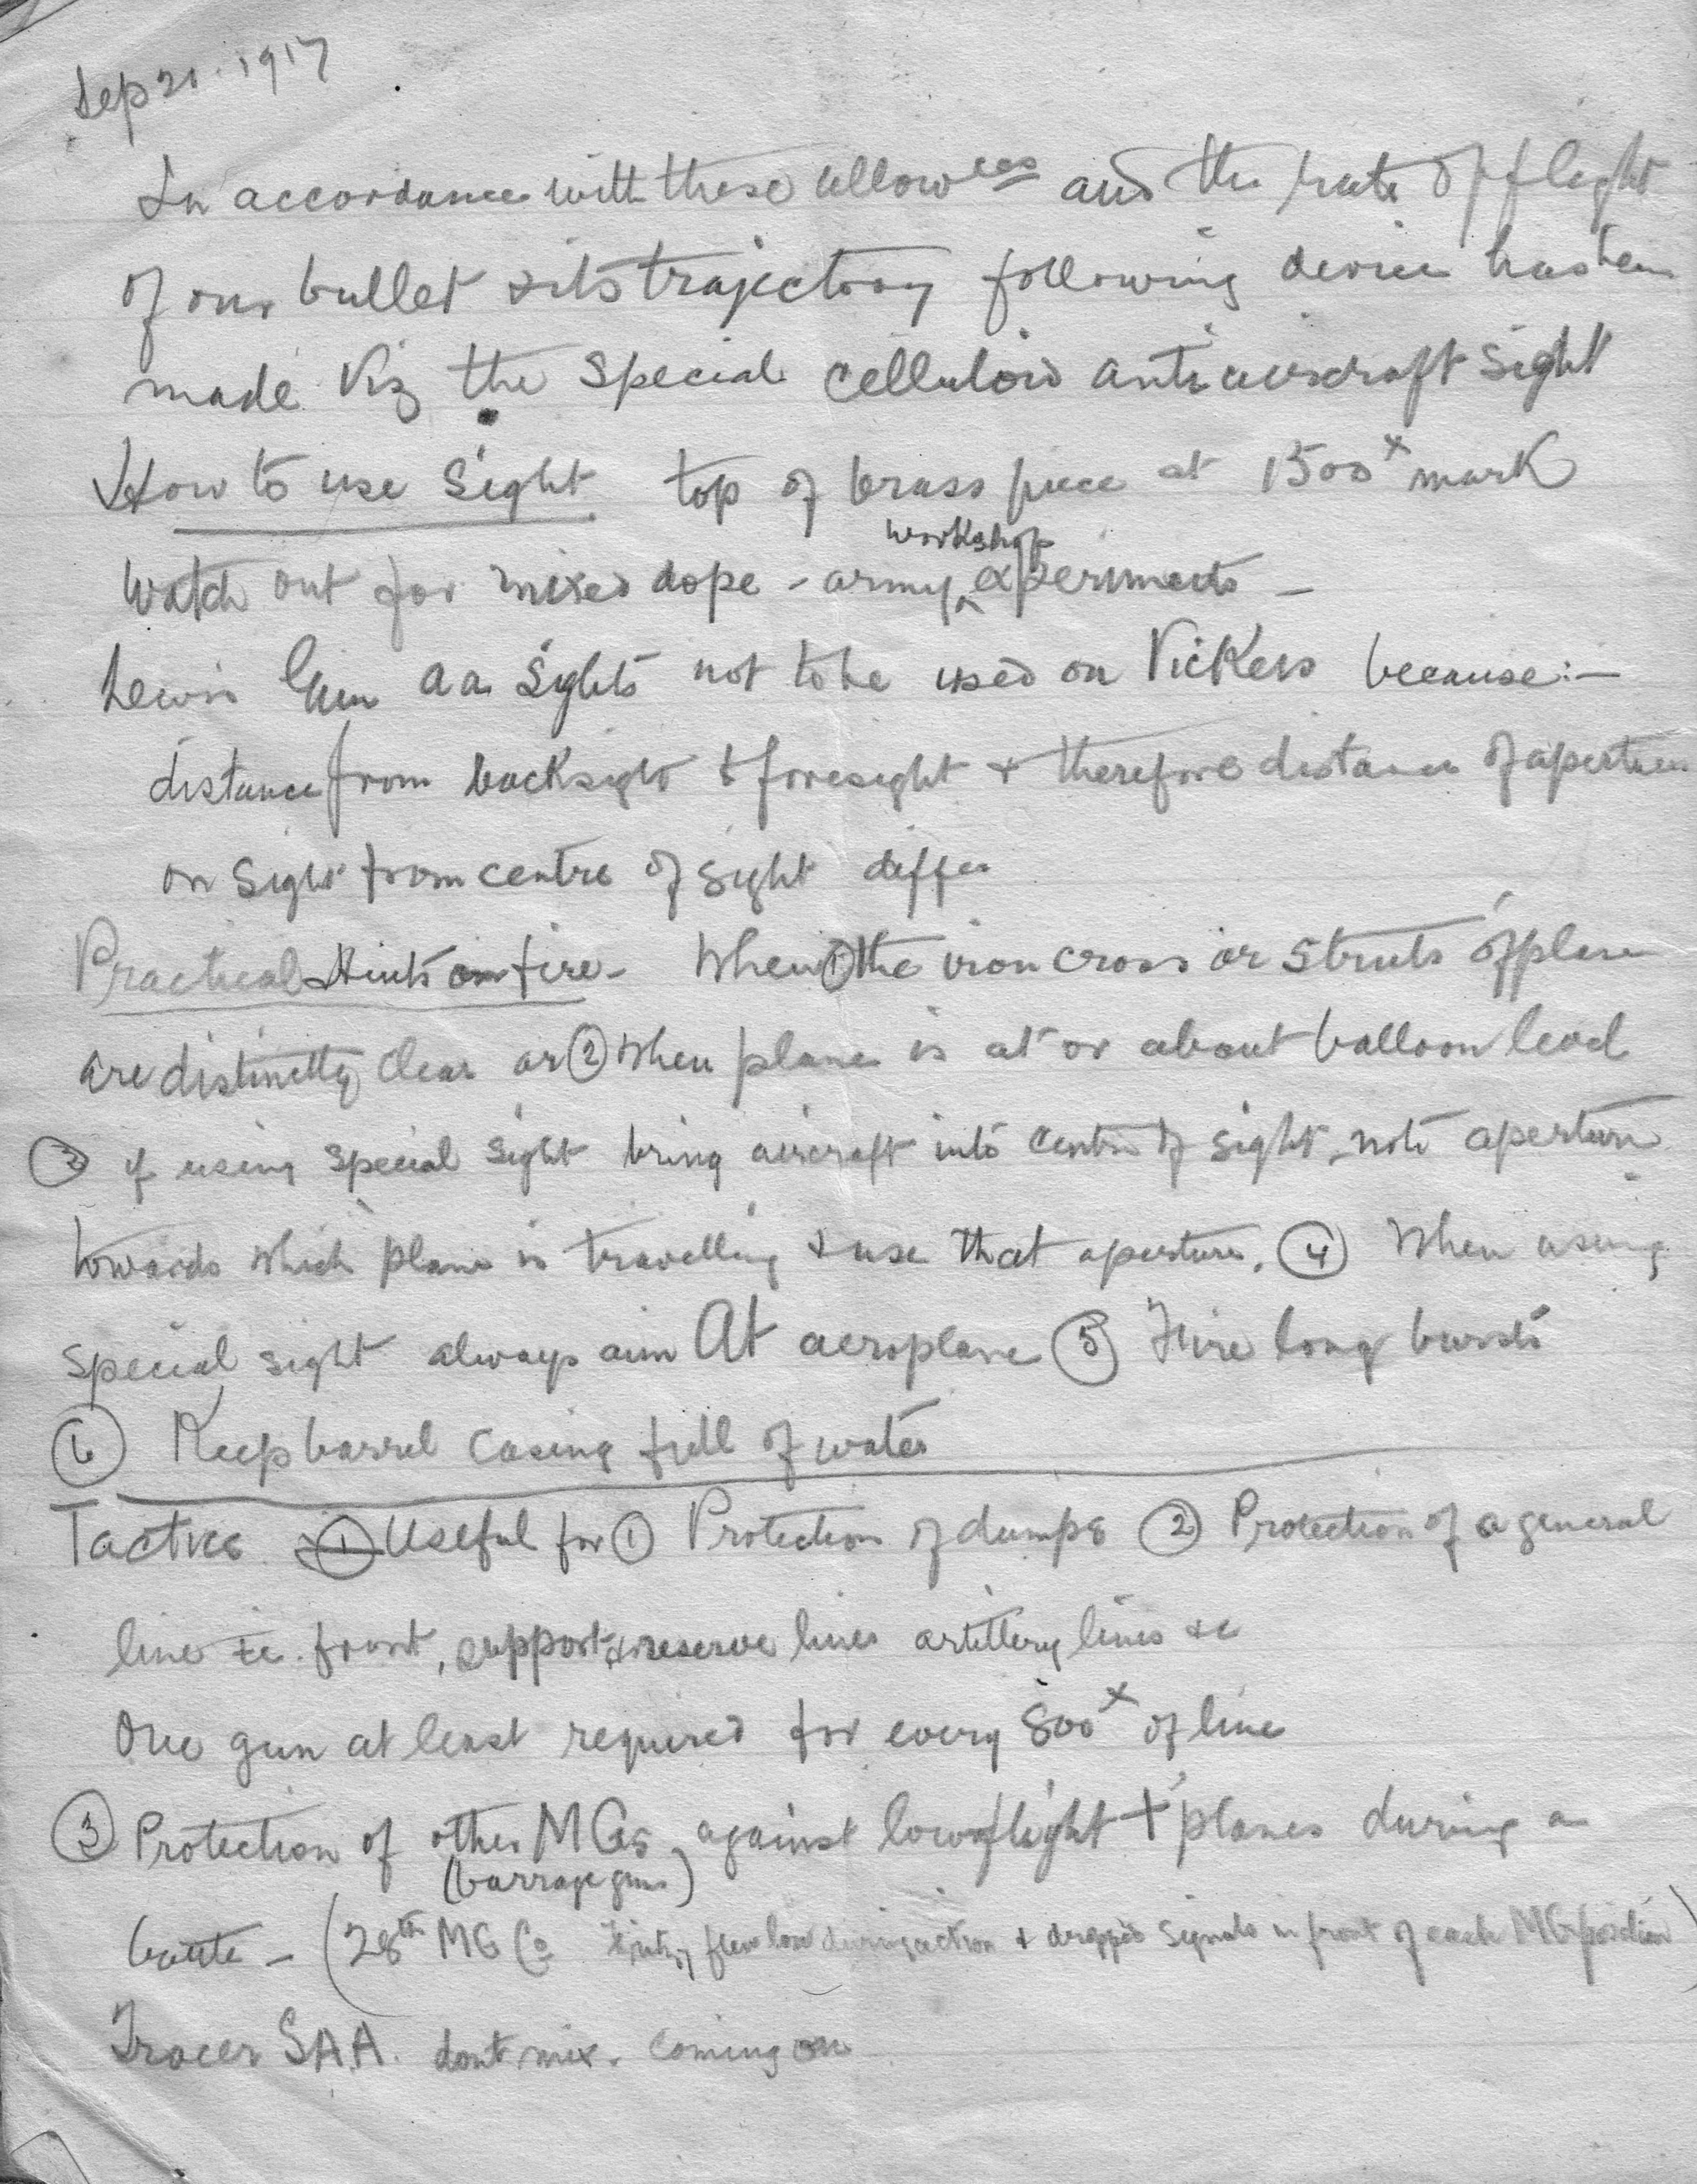 Sep 21. 1917
In accordance with these allowces and the rate of flight
of our bullet & its trajectory following device has been
made Viz the special celluloid anti aircraft sight
How to use Sight top of brass piece at 1500x mark
workshop
Watch out for mixed dope - army experiments -
Lewis Gun aa Sights not to be used on Vickers because:-
distance from backsight & foresight & therefore distance of aperture
on sight from centre of sight differ
Practical Hints on fire - When ① the iron cross or struts of plane
are distinctly clear or ② When plane is at or about balloon level
③ if using special sight bring aircraft into centre of sight, note aperture
towards which plane is travelling & use that aperture. ④ When using
special sight always aim At aeroplane ⑤ Fire long bursts
⑥ Keep barrel casing full of water
Tactics. ① Useful for ① Protection of dumps ② Protection of a general
line ie. front, support, & reserve lines artillery lines &c
One gun at least required for every 800x of line
③ Protection of other MGs against low flight + planes during a
(barrage guns)
battle - (28th MG Co flew low during action & dropped signals in front of each MG position)
Tracer S.A.A. dont mix. Coming on